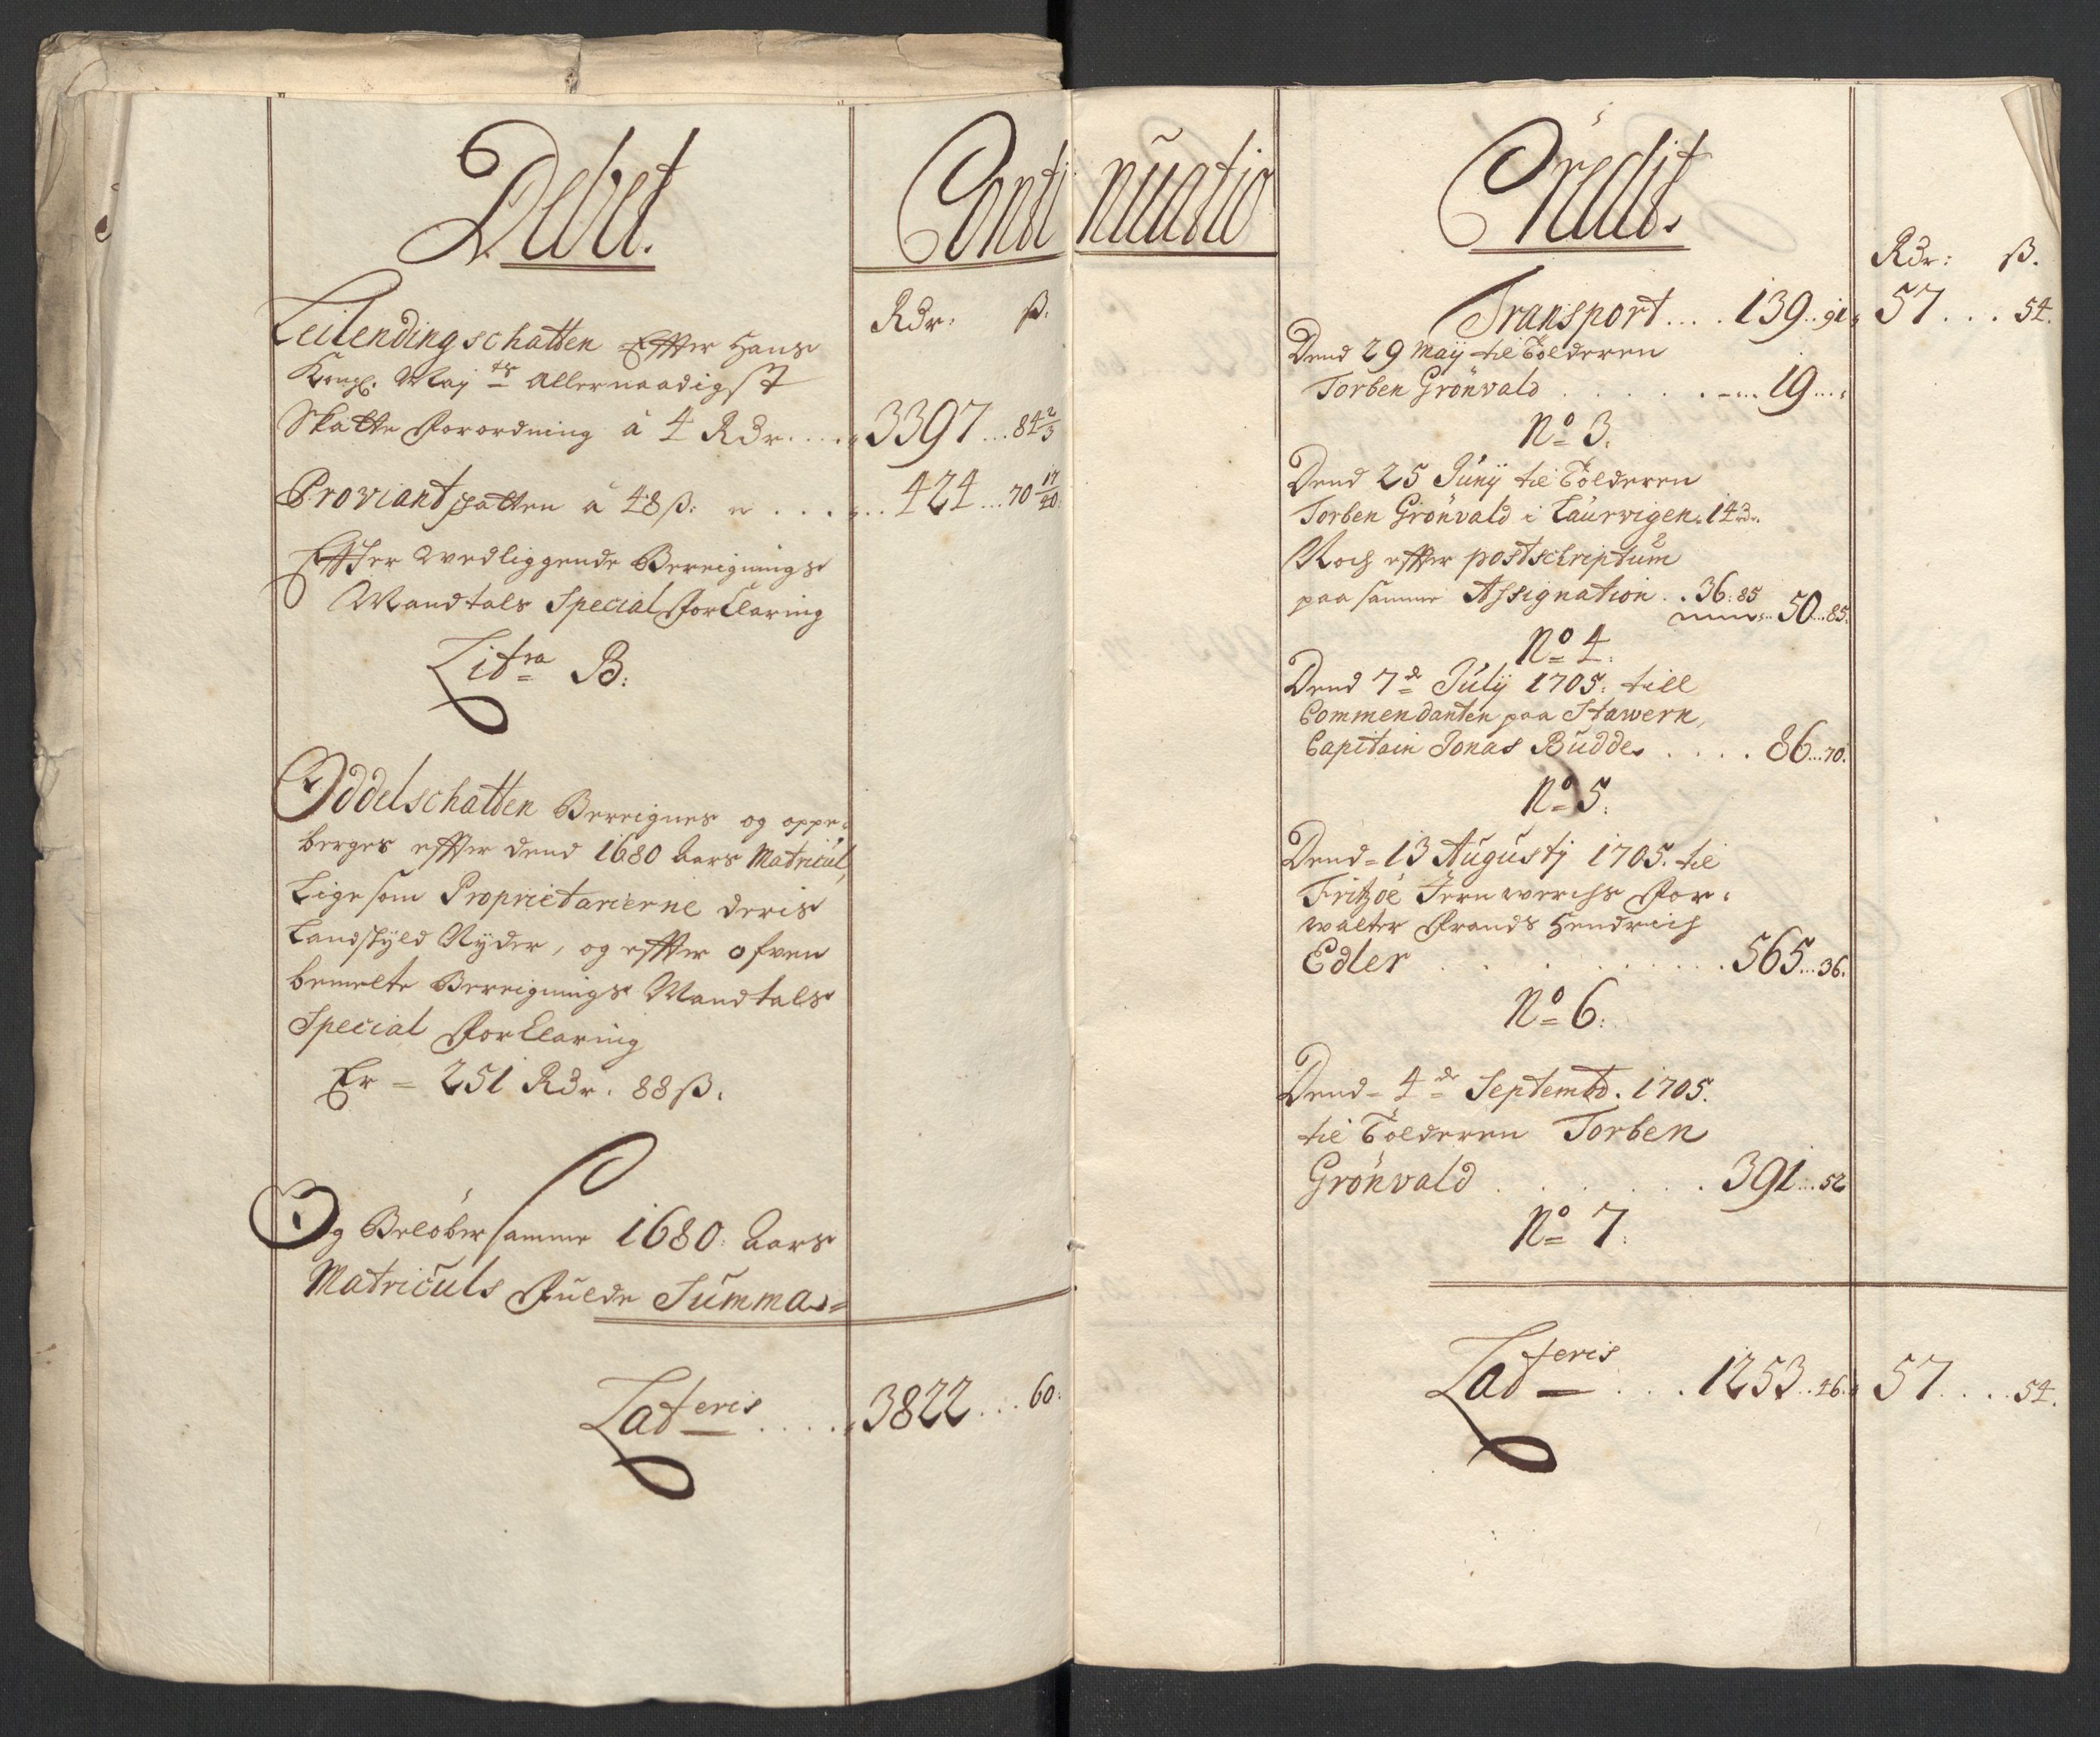 Debet.
Continuatio
Rdr: ß.
Leilendingschatten Effter Hans
Kongl. May:tz Allernaadigst
Skatte Forordning à 4 Rdr.... 3397...84 2/3
Proviantskatten à 48 ß: ... 424...70 17/20
Effter Wedliggende Bereignings
Mandtals Special Forklaring
Litra B:
Oddelschatten Bereignes og oppe-
berges effter dend 1680 Aars Matricul,
Lige som Proprietarierne deris
Landskyld Nyder, og effter ofven
bemelte Bereignings Mandtals
Special Forklaring
Er = 251 Rdr. 88 ß.
Og Beløber samme 1680: Aars
Matriculs Fulde Summa=
Lateris..... 3822...60:
Credit.
Rdr: ß.
Transport.... 139..91, 57...54.
Dend 29 Maij til Tolderen
Torben Grönvald . . . . . 19....
No 3.
Dend 25 Junij til Tolderen
Torben Grönvald i Laurvigen. 14 rd.
Noch effter postschriptum
paa samme Assignation . . 36:85
50...85.
No 4:
Dend 7de Julij 1705: till
Commendanten paa Stawern,
Capitain Jonas Budde . . . . 86...70.
No 5:
Dend=13 Augustj 1705. til
Fritzöe Jernwerchs For-
walter Frands Hendrich
Edler . . . . . . 565...36.
No 6:
Dend= 4de Septembd. 1705.
til Tolderen Torben
Grönvald . . . . . . 391...52
No 7:
Lateris . . . 1253..46. 57....54.